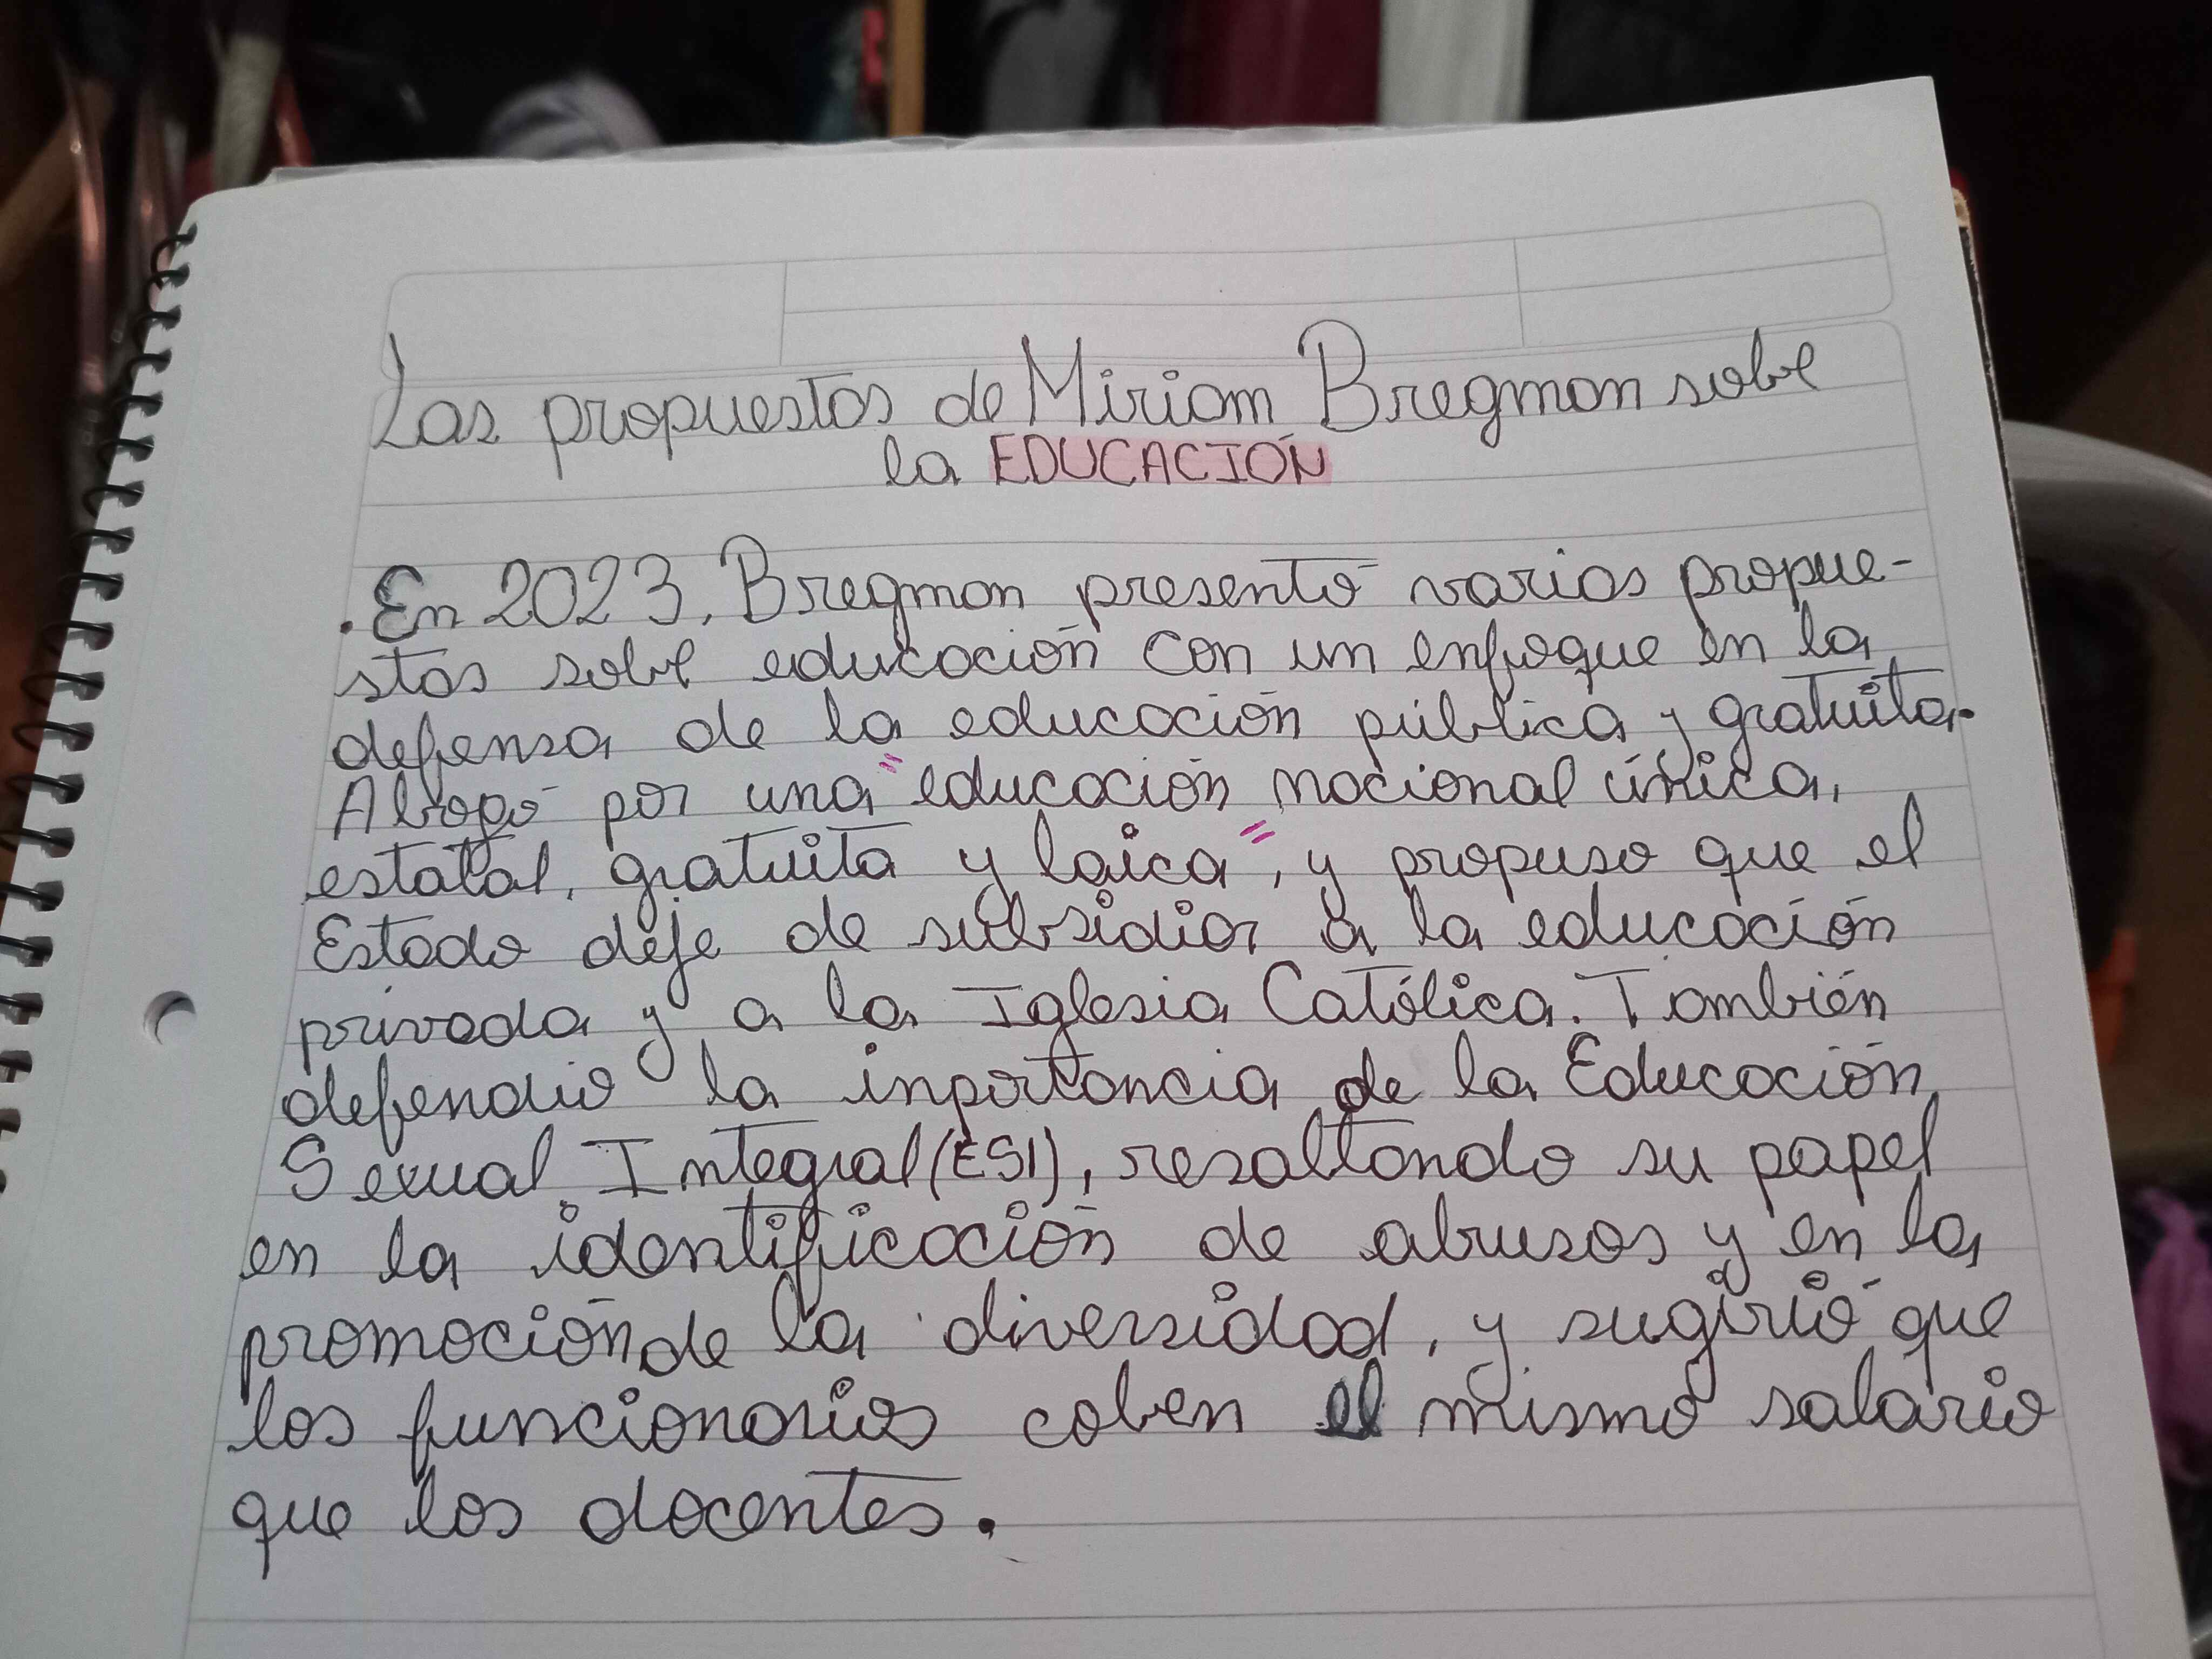 Las propuestas de Miriam Bregman sobre
la EDUCACIÓN
. En 2023, Bregman presentó varias propue-
stas sobre educación con un enfoque en la
defensa de la educación pública y gratuita.
Abogó por una "educación nacional única,
estatal, gratuita y laica", y propuso que el
Estado deje de subsidiar a la educación
privada y a la Iglesia Católica. También
defendió la inportancia de la Educación
Sexual Integral (ESI), resaltando su papel
en la identificación de abusos y en la
promoción de la diversidad, y sugirió que
los funcionarios coben el mismo salario
que los docentes.